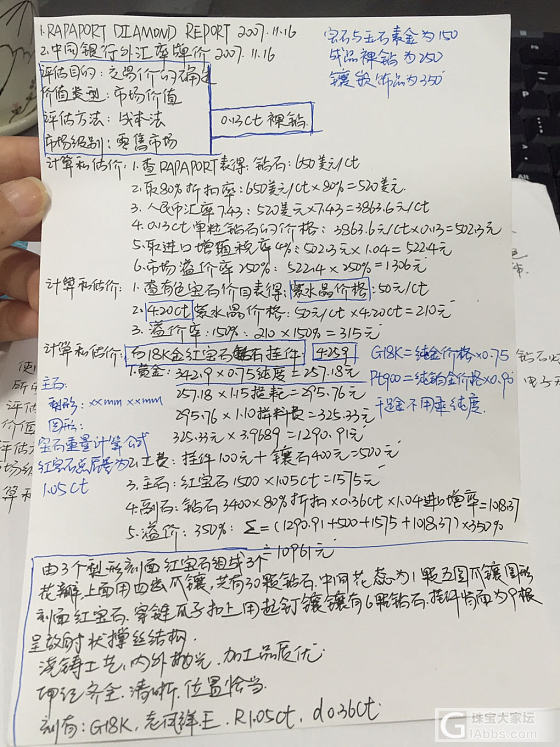 1. RAPAPORT DIAMOND REPORT 2007.11.16
2. 中国银行外汇率牌价 2007.11.16
宝石与玉石素金为150
成品裸钻为250
镶嵌饰品为350
评估目的：交易价的确定
价值类型：市场价值
评估方法：成本法
市场级别：零售市场
0.13ct 裸钻
计算和估价：1.查RAPAPORT表得：钻石：650美元/ct
2.取80%折扣率：650美元/ct×80%=520美元
3.人民币汇率7.43：520美元×7.43=3863.6元/ct
4.0.13ct单粒钻石的价格：3863.6元/ct×0.13=502.3元
5.取进口增值税率4%：502.3元×1.04=522.4元
6.市场溢价率250%：522.4×250%=1306元
计算和估价：1.查有色宝石价目表得：紫水晶价格：50元/ct
2.4.20ct紫水晶价格：50元/ct×4.20ct=210元
3.溢价率：150%：210×150%=315元
计算和估价：白18K金红宝石钻石挂件 4.25g
G18K=纯金价格×0.75
1.黄金：342.9×0.75纯度=257.18元
Pt900=纯铂金价格×0.90
主石：
257.18×1.15损耗=295.76元
千足金不用乘纯度
梨形：××mm ××mm
295.76×1.10损料费=325.33元
圆形：
325.33元×3.9689=1290.91元
宝石重量计算公式
2.工费：挂件100元+镶石400元=500元
红宝石总质量为
1.05ct
3.主石：红宝石1500×1.05ct=1575元
4.副石：钻石3400×80%折扣×0.36ct×1.04进口增率=1018.37
5.溢价：350%：Σ=(1290.91+500+1575+1018.37)×350%
=10961元
由3个梨形刻面红宝石组成3个
花瓣，上面用四齿爪镶，共有30颗钻石，中间花蕊为1颗五圆爪镶圆形
刻面红宝石，穿链瓜子扣上用起钉镶镶有6颗钻石，挂件背面为9根
呈放射状撑丝结构
浇铸工艺，内外抛光，加工品质优
印记齐全，清晰，位置恰当
刻有：G18K，R1.05ct，d0.36ct
珠宝大家坛
GIAbbs.com